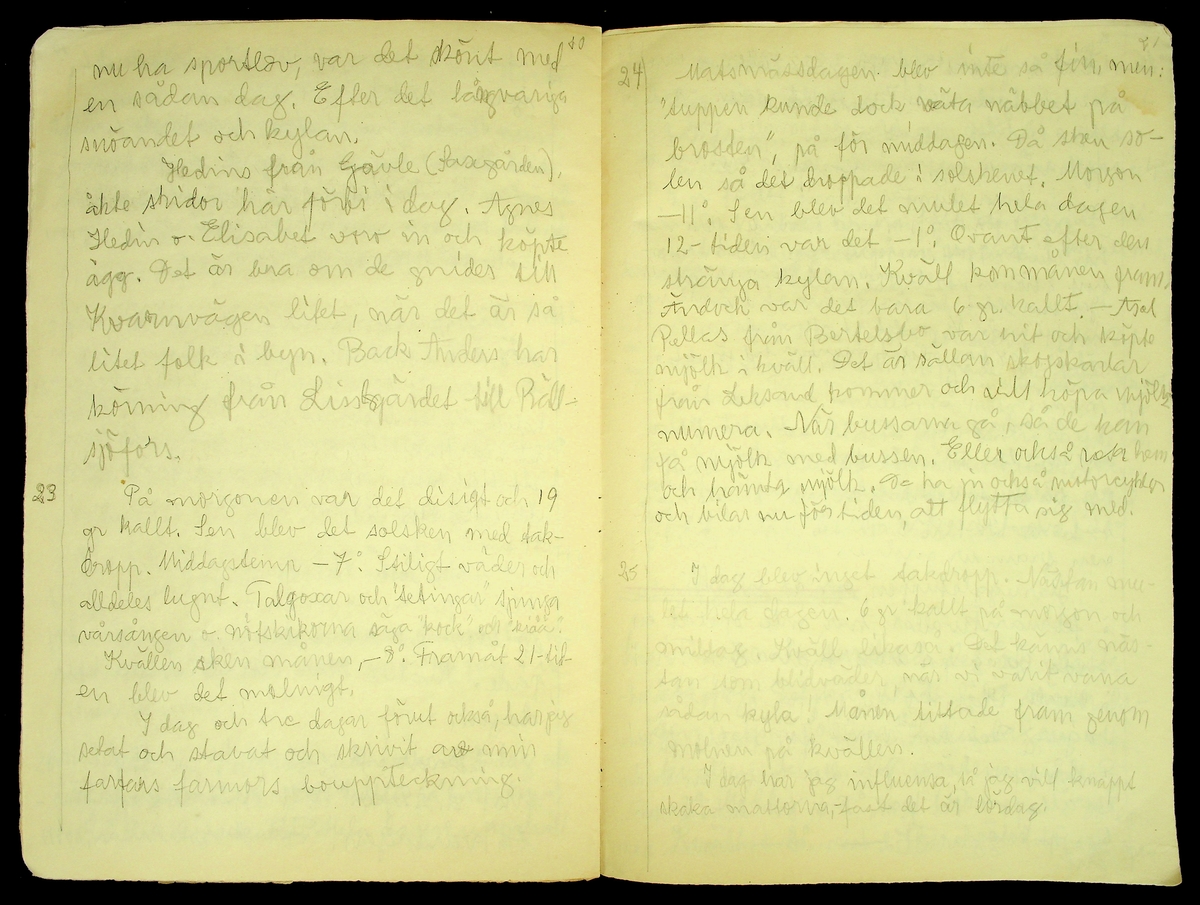 40
nu ha sportlov, var det skönt med
en sådan dag. Efter det långvariga
snöandet och kylan.
Hedins från Gävle (Saxgården),
åkte skidor här förbi i dag. Agnes
Hedin o. Elisabet voro in och köpte
ägg. Det är bra om de gnider till
Kvarnvägen litet, när det är så
litet folk i byn. Back Anders har
körning från Lissgärdet till Räll-
sjöfors.
23 På morgonen var det disigt och 19
gr kallt. Sen blev det solsken med tak-
dropp. Middagstemp -7°. Stiligt väder och
alldeles lugnt. Talgoxar och "tetingar" sjunga
vårsången o. nötskrikorna säga "kock" och
Kvällen sken månen, -8°. Framåt 21-tid-
en blev det molnigt.
I dag och tre dagar förut också, har jag
setat och stavat och skrivit av min
farfars farmors bouppteckning.
41
24 Matsmässdagen blev inte så fin, men:
"tuppen kunde dock väta näbbet på
brosten", på för middagen. Då sken so-
len så det droppade i solskenet. Morgon
-11°. Sen blev det mulet hela dagen
12-tiden var det -1°. Ovant efter den
stränga kylan. Kväll kom månen fram.
Ändock var det bara 6 gr. kallt. — Axel
Pellas från Bertelsbo var hit och köpte
mjölk i kväll. Det är sällan skogskarlar
från Leksand kommer och vill köpa mjölk
numera. När bussarna gå, så de kan
få mjölk med bussen. Eller också resa hem
och hämta mjölk. De ha ju också motorcyklar
och bilar nu för tiden, att flytta sig med.
25 I dag blev inget takdropp. Nästan mu-
let hela dagen. 6 gr kallt på morgon och
middag. Kväll likaså. Det känns näs-
tan som blidväder, när vi varit vana
sådan kyla! Månen tittade fram genom
molnen på kvällen.
I dag har jag influensa, så jag vill knappt
skaka mattorna, fast det är lördag.